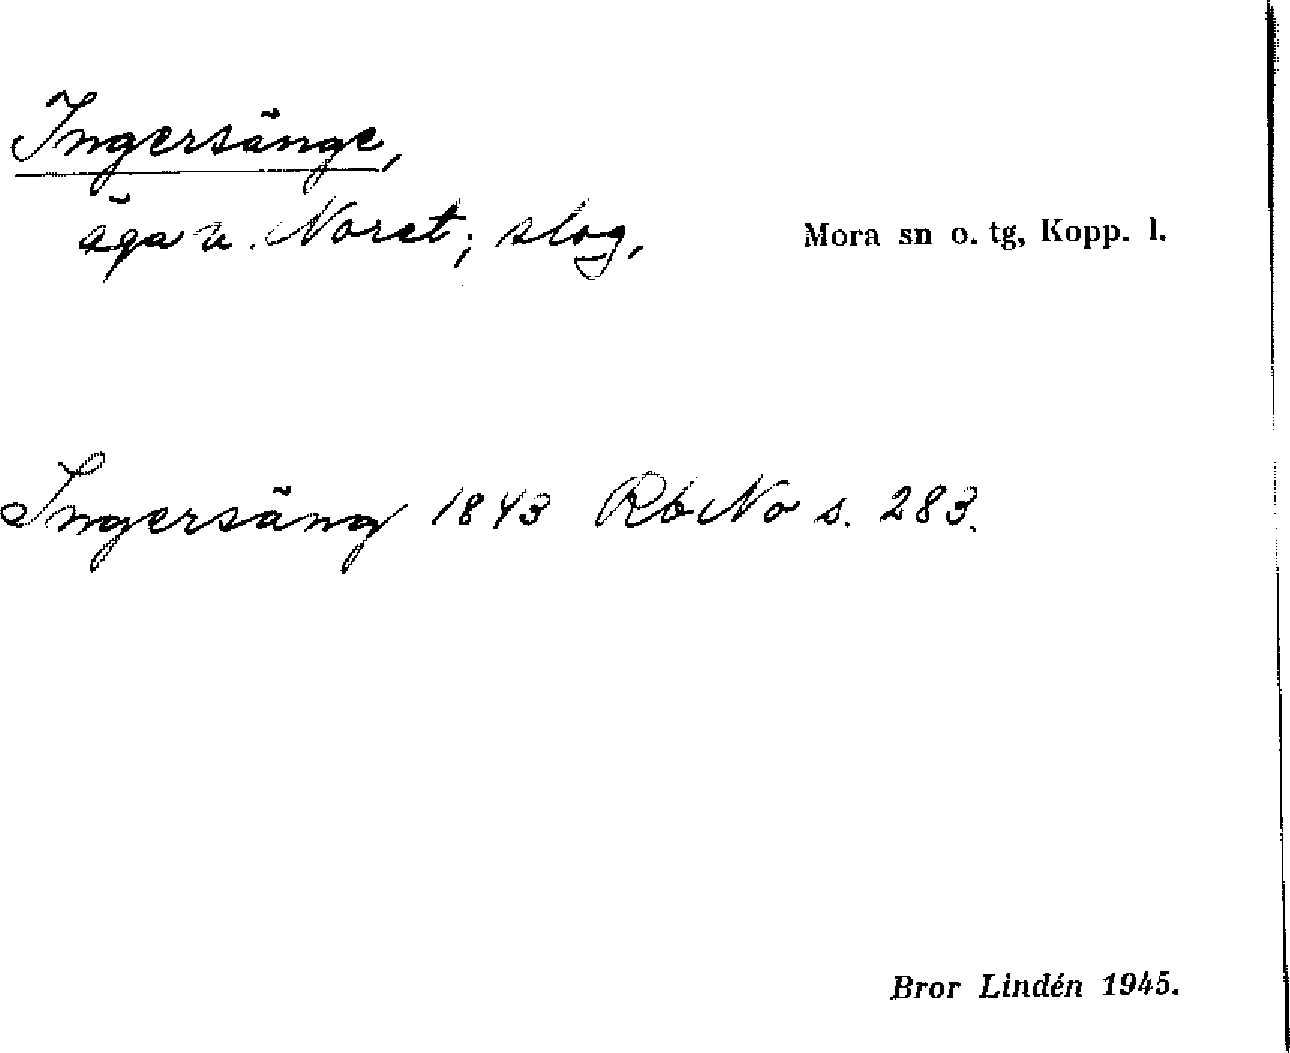 Ingersänge,
äga u. Noret; slog, Mora sn o. tg, Kopp. l.
Ingersäng 1843 RbNo s. 283.
Bror Lindén 1945.